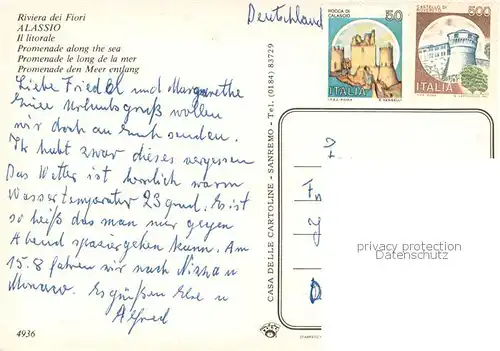 Riviera dei Fiori
ALASSIO
Il litorale
Promenade along the sea
Promenade le long de la mer
Promenade den Meer entlang
Deutschland
ROCCA DI CALASCIO
50
ITALIA
CASTELLO DI
500
ITALIA
Liebe Friedel und Margarethe
Einen Urlaubsgruß wollen
wir doch an Euch senden.
Ihr habt zwar dieses vergessen
Das Wetter ist herrlich warm
Wassertemperatur 23 grad. Es ist
so heiß das man nur gegen
Abend spazierengehen kann. Am
15.8 fahren wir nach Nizza u
Monaco. Es grüßen Else u
Alfred
CASA DELLE CARTOLINE - SANREMO - TEL. (0184) 83729
privacy protection
VOLKSWARE.DE
4936